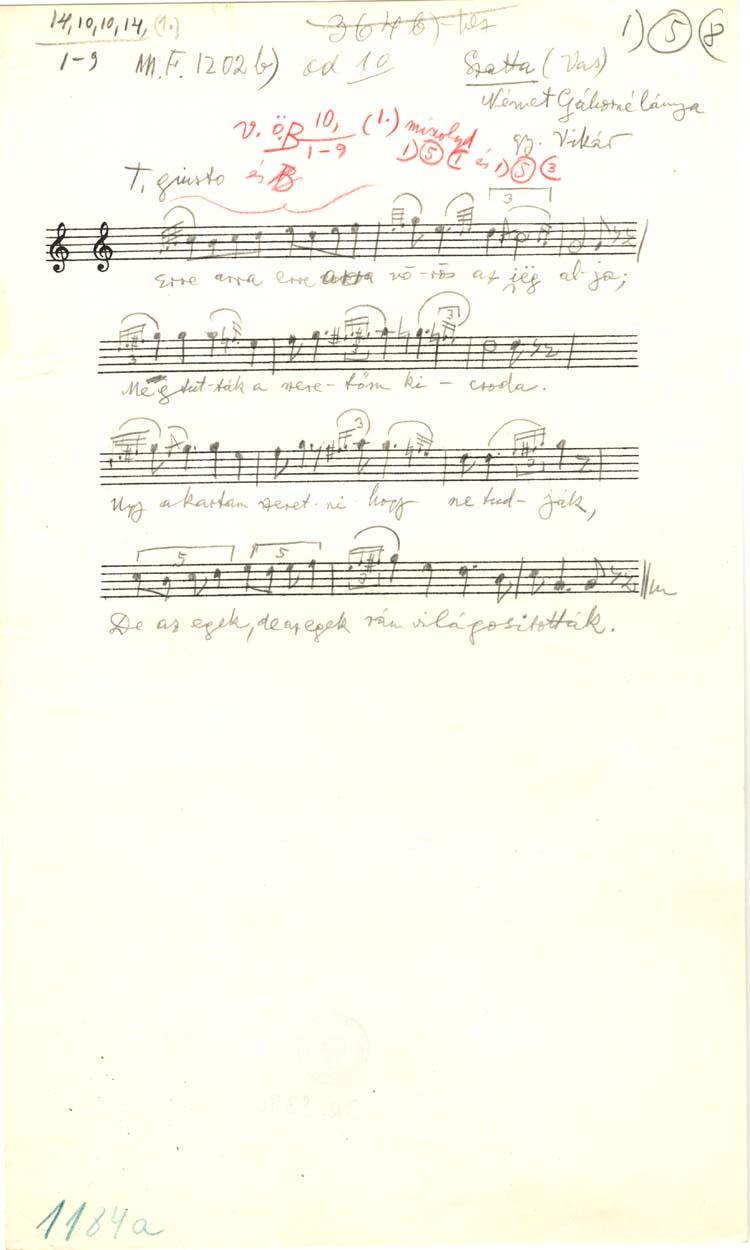 14, 10, 10, 14, (1.)
364 b)-hez
1) 5 (8
1-9 M.F. 1202 b) ad 10 Szatta (Vas)
Német Gáborné lánya
gy. Vikár
V. ö. B 10, (1.) mixolyd
1-9 1) 5 (1 és 1) 5 (3
és B
T. giusto
3
Erre arra erre arra vö-rös az ég al-ja;
3 3 3
Megtut-ták a szere-tőm ki - csoda.
3 3
Ugy akartam szeret-ni hogy ne tud-ják,
5 5 3
De az egek, de az egek rám világosították.
1184a